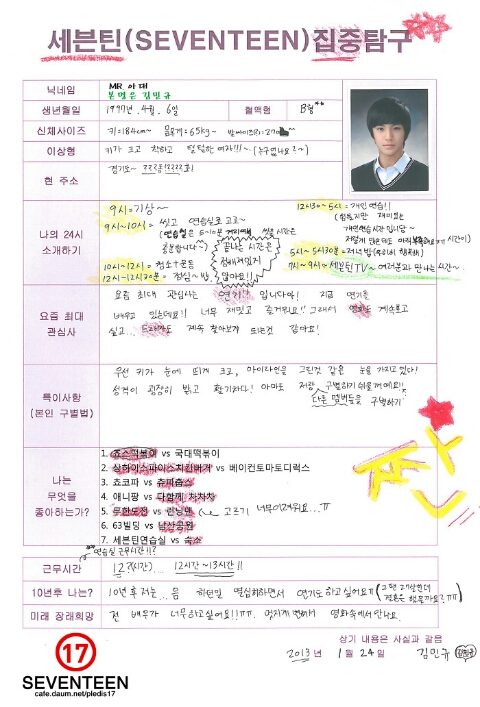 세븐틴(SEVENTEEN)집중탐구
닉네임
MR. 아재
본명은 김민규
생년월일
1997년. 4월. 6일
혈액형
B형**
신체사이즈
키=184cm~ 몸무게=65kg~ 발사이즈는=270
이상형
키가 크고 착하고 털털한 여자!!!~ (누구없나요?~)
현 주소
경기도~
나의 24시
소개하기
9시=기상~
9시~10시= 씻고 연습실로 고고~
끝나는 시간은
정해져있지
않아요!!
10시~12시=청소+운동
12시~12시30분=점심~밥
12시30~5시=개인 연습!!
(힘들지만 재미있는
개인연습시간 입니당~
5시~5시30분=저녁밥
7시~9시=세븐틴TV~ 여러분과 만나는 시간~.
요즘 최대
관심사
요즘 최대 관심사는 연기 입니다아! 지금 연기를
배우고 있는데요!! 너무 재밌고 즐거워요!! 그래서 영화도 계속보고
싶고... 드라마도 계속 찾아보게 되는것 같아요!
특이사항
(본인 구별법)
우선 키가 눈에 띄게 크고, 아이라인을 그린것 같은 눈을 가지고있다!
성격이 굉장히 밝고 활기차다! 아마도 저랑 구별하기 쉬울꺼예요!!
다른 멤버들을 구별하기
나는
무엇을
좋아하는가?
1. 죠스떡볶이 vs 국대떡볶이
2. 상하이스파이스치킨버거 vs 베이컨토마토디럭스
3. 쵸코파 vs 츄파춥스
4. 애니팡 vs 다함께 차차차
5. 무한도전 vs 런닝맨 고르기 너무어려워요...ㅠ
6. 63빌딩 vs 남산공원
7. 세븐틴연습실 vs 숙소
짠
**연습실 근무시간!!?
근무시간
12?(시간)... 12시간~13시간!!
10년후 나는?
10년 후 저는... 음 하던일 열심히하면서 연기도 하고싶어요ㅠ
미래 장래희망
전 배우가 너무하고싶어요!!ㅠㅠ. 멋지게 변해서 영화속에서 만나요.
상기 내용은 사실과 같음
2013년 1월 24일 김민규
17
SEVENTEEN
cafe.daum.net/pledis17